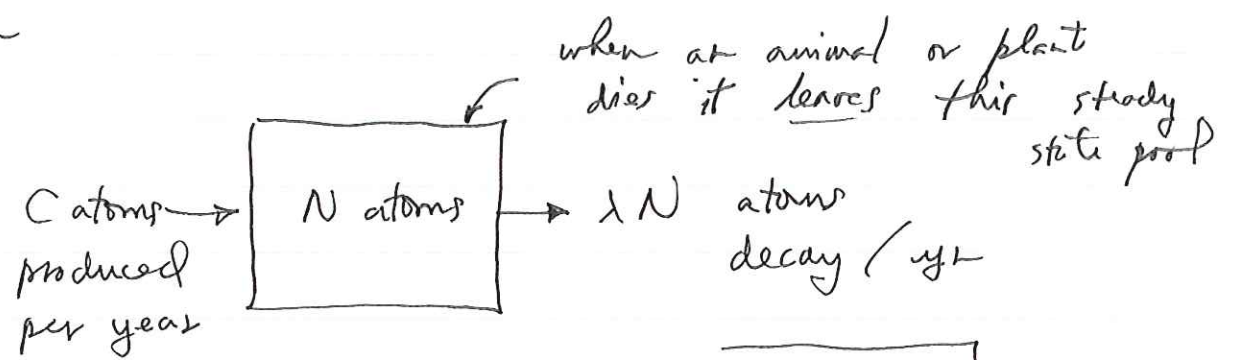 when an animal or plant
dies it leaves this steady
state pool
C atoms
produced
per year
N atoms
λN atoms
decay / yr